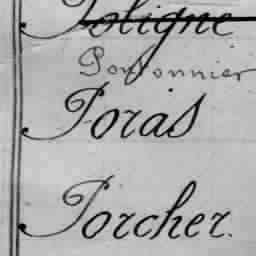 Poligne
Pontonnier
Poras
Porcher.